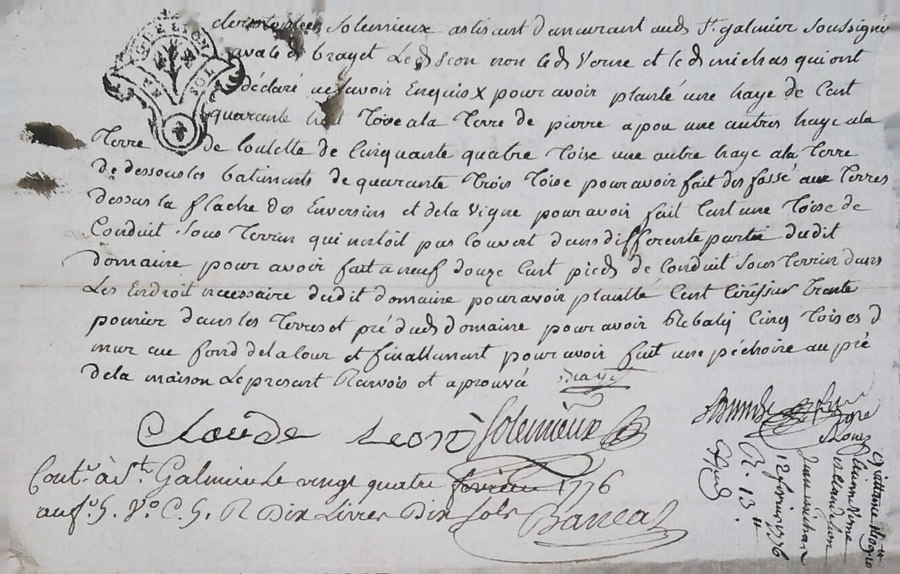 GEN. DE LION
SOL
Solemieux demeurant aud St. galmier Soussigné
de brayet Le d. Leon non led. Verne et led. michas qui ont
déclaré ne savoir Enquis x pour avoir planté une haye de Cent
quarante huit Toise ala Terre de pierre apou une autres haye ala
Terre de Coulette de Cinquante quatre Toise une autre haye ala Terre
de dessous les batiments de quarante Trois Toise pour avoir fait des fossé aux Terres
dessus la flache des Enversins et dela Vigne pour avoir fait Cent une Toise de
Conduit Sous Terrin qui nestoit pas Couvert dans differente partie dudit
domaine pour avoir fait aneuf douze Cent pieds de Conduit Sous Terrin dans
Les Endroit necessaire dudit domaine pour avoir planté Cent Trante
pourier dans les Terres et pré dud. domaine pour avoir Rebaty Cinq Toises d
mur au fond dela Cour et finallemant pour avoir fait une pêchoire au pré
dela maison Le presant Ranvois et aprouvá
Claude Leon Solemieux
Cont. à St. Galmier Le vingt quatre fevrier 1776
au f. 5. Vo. C. 5. R Dix Livres Dix Sols Bancal
Quittance
12 fevrier 1776
R. 13 tt